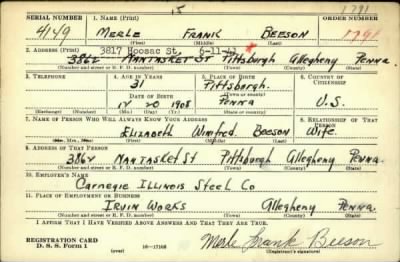 15
1791
SERIAL NUMBER 1. NAME (Print) ORDER NUMBER
4149 MERLE FRANK BEESON 1791
(First) (Middle) (Last)
2. ADDRESS (Print) 3817 Hoosac St. 6-11-41
3862 NANTASKET ST Pittsburgh Allegheny Penna
(Number and street or R. F. D. number) (Town) (County) (State)
3. TELEPHONE 4. AGE IN YEARS 5. PLACE OF BIRTH 6. COUNTRY OF CITIZENSHIP
31 Pittsburgh.
DATE OF BIRTH (Town or county)
12 20 1908 Penna U.S.
(Exchange) (Number) (Mo.) (Day) (Yr.) (State or country)
7. NAME OF PERSON WHO WILL ALWAYS KNOW YOUR ADDRESS 8. RELATIONSHIP OF THAT PERSON
Elizabeth Winifred Beeson Wife
(Mr., Mrs., Miss) (First) (Middle) (Last)
9. ADDRESS OF THAT PERSON
3862 Nantasket St Pittsburgh Allegheny Penna.
(Number and street or R. F. D. number) (Town) (County) (State)
10. EMPLOYER'S NAME
Carnegie Illinois Steel Co
11. PLACE OF EMPLOYMENT OR BUSINESS
Irvin Works Allegheny Penna.
(Number and street or R. F. D. number) (Town) (County) (State)
I AFFIRM THAT I HAVE VERIFIED ABOVE ANSWERS AND THAT THEY ARE TRUE.
REGISTRATION CARD
D. S. S. Form 1 (over) 16-17105 Merle Frank Beeson
(Registrant's signature)